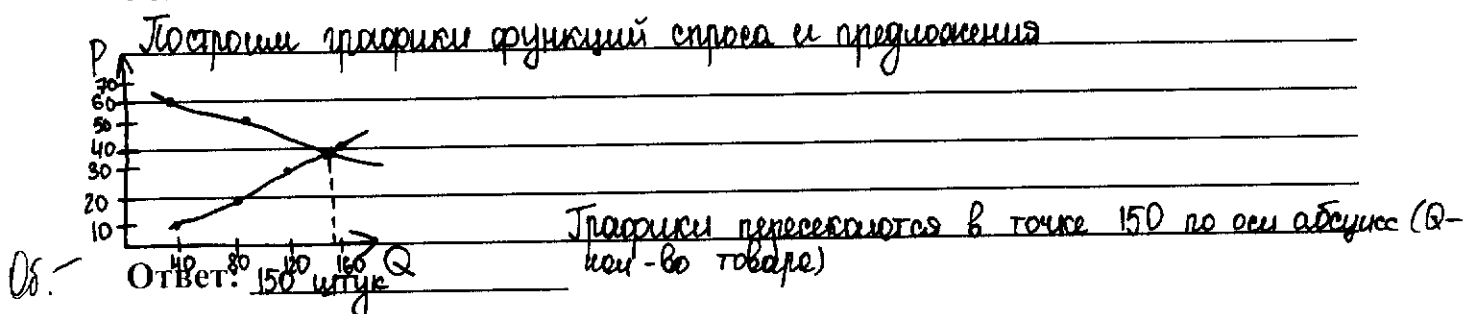 Построим графики функций спроса и предложения
P
70
60
50
40
30
20
10
40 80 120 160 Q
Графики пересекаются в точке 150 по оси абсцисс (Q-
кол-во товара)
0б.-
Ответ: 150 штук